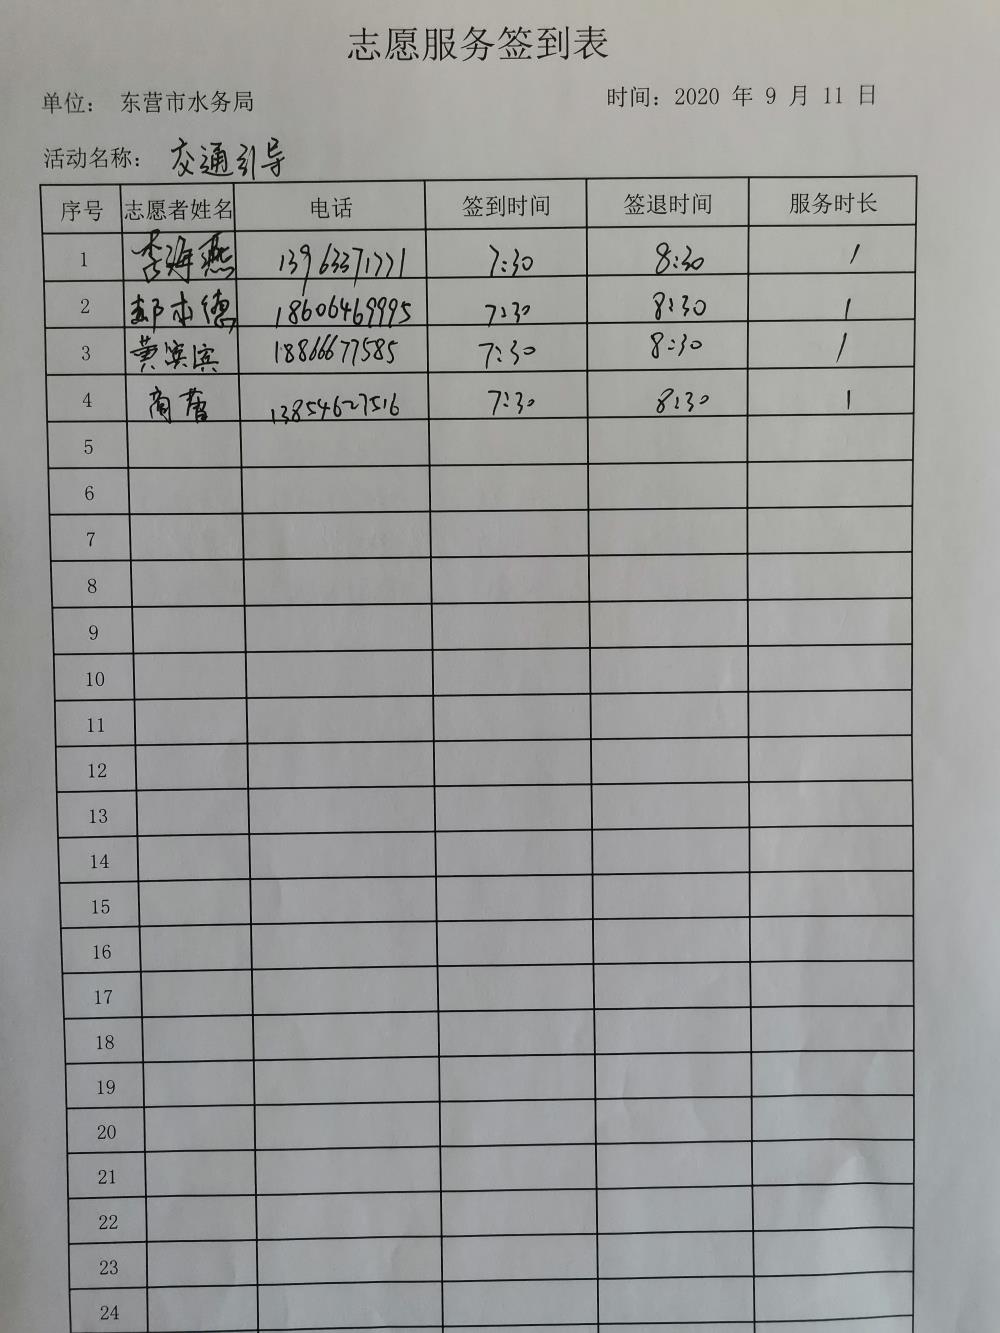 志愿服务签到表
单位： 东营市水务局 时间：2020 年 9 月 11 日
活动名称： 交通引导
序号 志愿者姓名 电话 签到时间 签退时间 服务时长
1 李海燕 13963371771 7:30 8:30 1
2 本德 18606469995 7:30 8:30 1
3 黄滨滨 18866677585 7:30 8:30 1
4 商蕾 13854627516 7:30 8:30 1
5
6
7
8
9
10
11
12
13
14
15
16
17
18
19
20
21
22
23
24